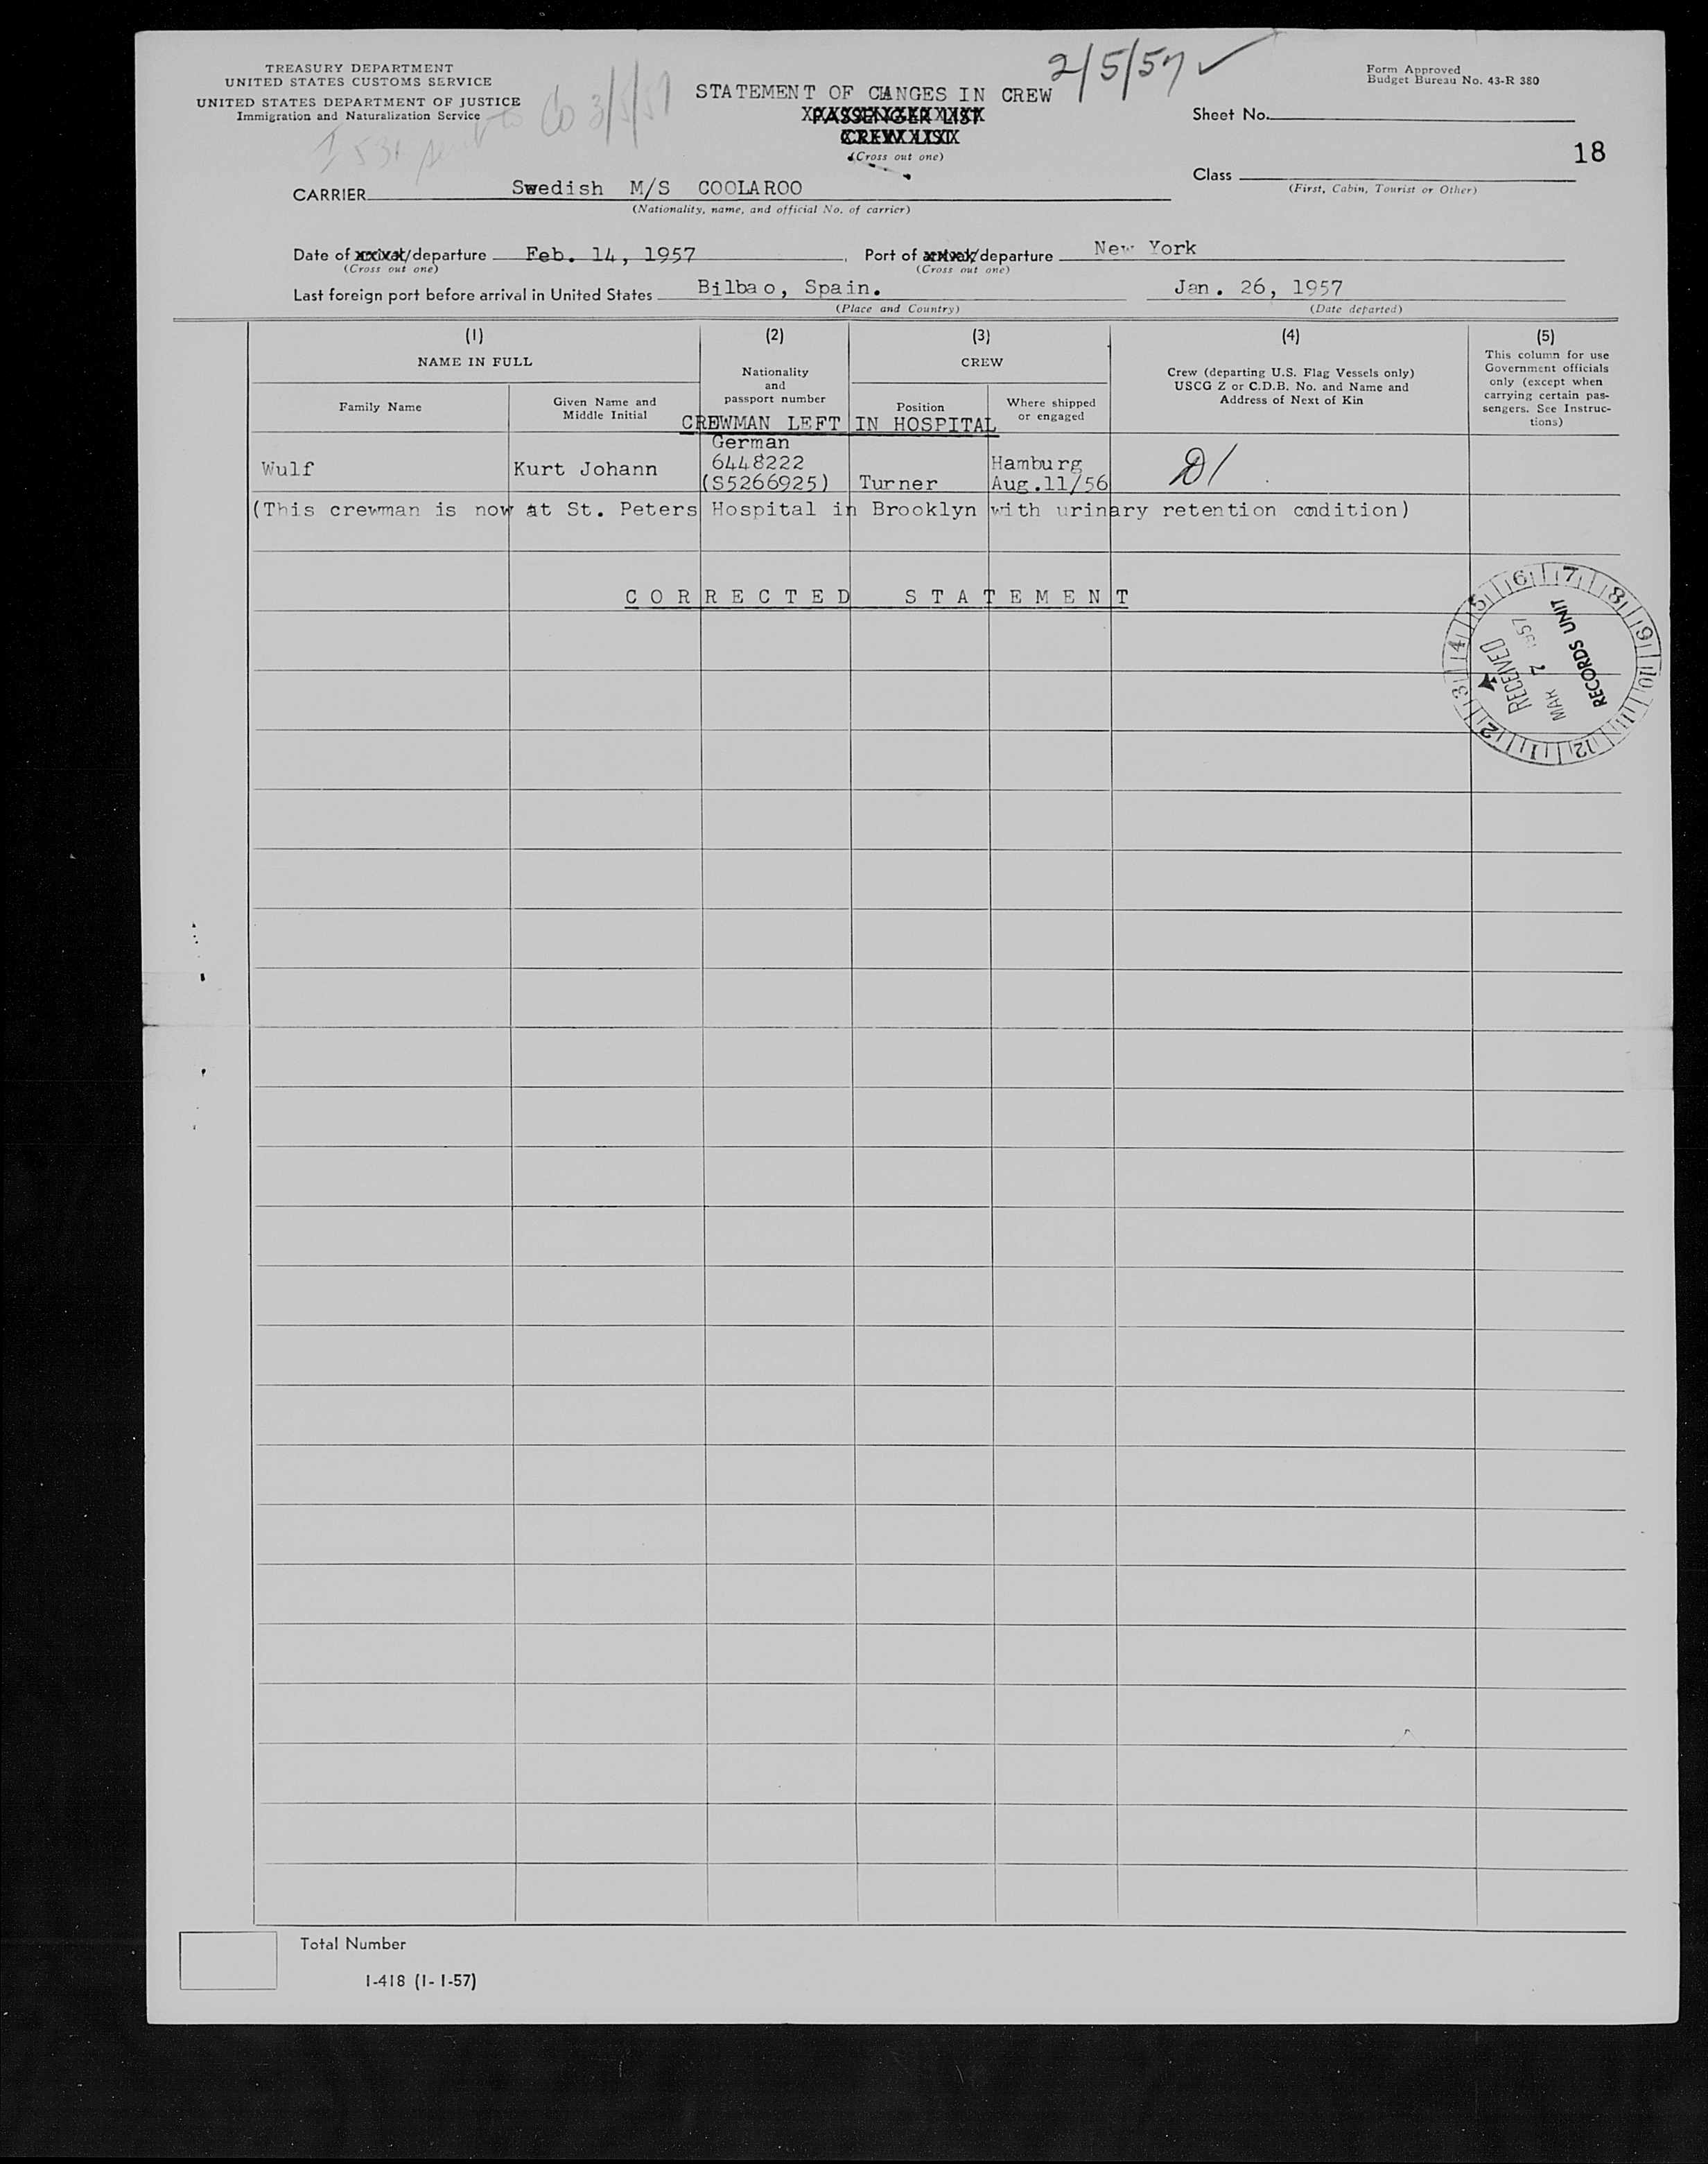 TREASURY DEPARTMENT
UNITED STATES CUSTOMS SERVICE
UNITED STATES DEPARTMENT OF JUSTICE
Immigration and Naturalization Service
Co 3/5/57
I 531 sent to
STATEMENT OF CHANGES IN CREW
2/5/57 ✓
PASSENGER LIST
CREW LIST
(Cross out one)
Form Approved
Budget Bureau No. 43-R 380
Sheet No.
18
Class
(First, Cabin, Tourist or Other)
CARRIER Swedish M/S COOLAROO
(Nationality, name, and official No. of carrier)
Date of arrival/departure Feb. 14, 1957, Port of arrival/departure New York
(Cross out one) (Cross out one)
Last foreign port before arrival in United States Bilbao, Spain. Jan. 26, 1957
(Place and Country) (Date departed)
(1)
NAME IN FULL
Family Name
Given Name and
Middle Initial
(2)
Nationality
and
passport number
(3)
CREW
Position
Where shipped
or engaged
(4)
Crew (departing U.S. Flag Vessels only)
USCG Z or C.D.B. No. and Name and
Address of Next of Kin
(5)
This column for use
Government officials
only (except when
carrying certain pas-
sengers. See Instruc-
tions)
CREWMAN LEFT IN HOSPITAL
Wulf
Kurt Johann
German
6448222
(S5266925)
Turner
Hamburg
Aug.11/56
D1
(This crewman is now at St. Peters Hospital in Brooklyn with urinary retention condition)
CORRECTED STATEMENT
1 2 3 4 5 6 7 8 9 10 11 12
RECEIVED
MAR 7 1957
RECORDS UNIT
Total Number
I-418 (1-1-57)